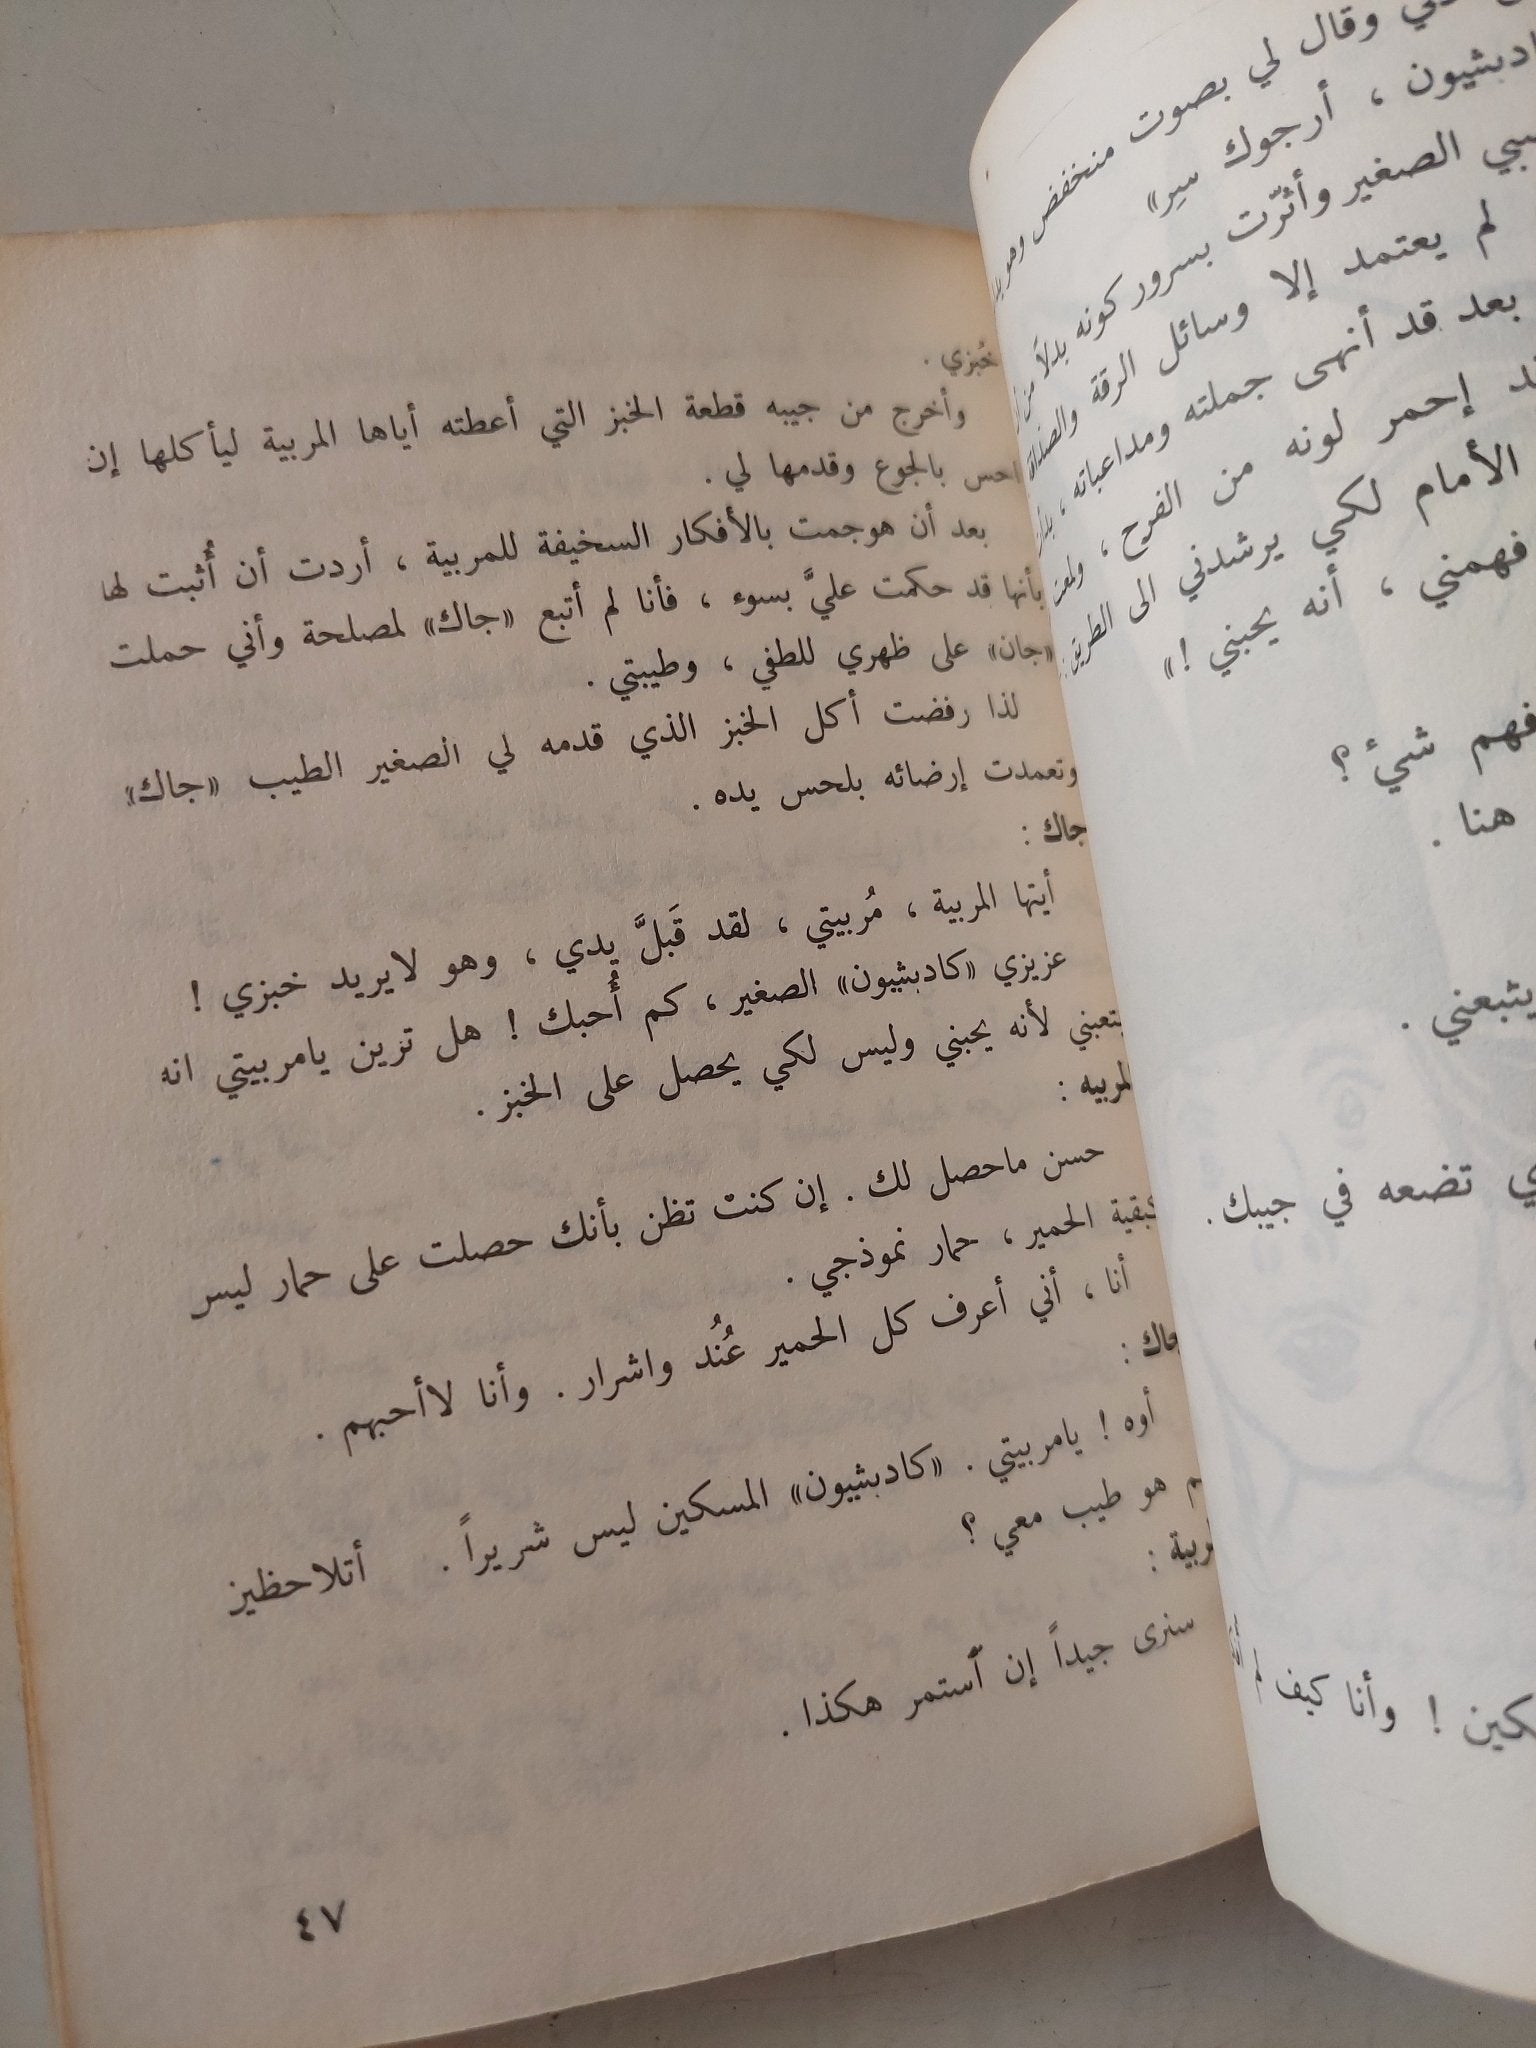 وقال لي بصوت منخفض وهو
أرجوك سير»
الصغير وأثرّت بسرور كونه بدلاً من
لم يعتمد إلا وسائل الرقة والصداقة
بعد قد أنهى جملته ومداعباته ،
إحمر لونه من الفرح ،
الأمام لكي يرشدني الى الطريق
فهمني ، أنه يحبني !»
فهم شيئ ؟
هنا .
يتبعني .
تضعه في جيبك .
! وأنا كيف لم
خُبزي .
وأخرج من جيبه قطعة الخبز التي أعطته أياها المربية ليأكلها إن
احس بالجوع وقدمها لي .
بعد أن هوجمت بالأفكار السخيفة للمربية ، أردت أن أُثبت لها
بأنها قد حكمت عليَّ بسوء ، فأنا لم أتبع «جاك» لمصلحة وأني حملت
«جان» على ظهري للطفي ، وطيبتي .
لذا رفضت أكل الخبز الذي قدمه لي الصغير الطيب «جاك»
وتعمدت إرضائه بلحس يده .
جاك :
أيتها المربية ، مُربيتي ، لقد قَبلَّ يدي ، وهو لايريد خبزي !
عزيزي «كاديشيون» الصغير ، كم أُحبك ! هل ترين يامربيتي انه
يتعبني لأنه يحبني وليس لكي يحصل على الخبز .
المربيه :
حسن ماحصل لك . إن كنت تظن بأنك حصلت على حمار ليس
كبقية الحمير ، حمار نموذجي .
أنا ، أني أعرف كل الحمير عُنُد واشرار . وأنا لاأحبهم .
جاك :
أوه ! يامربيتي . «كاديشيون» المسكين ليس شريراً . أتلاحظين
كم هو طيب معي ؟
المربية :
سنرى جيداً إن ٱستمر هكذا .
٤٧